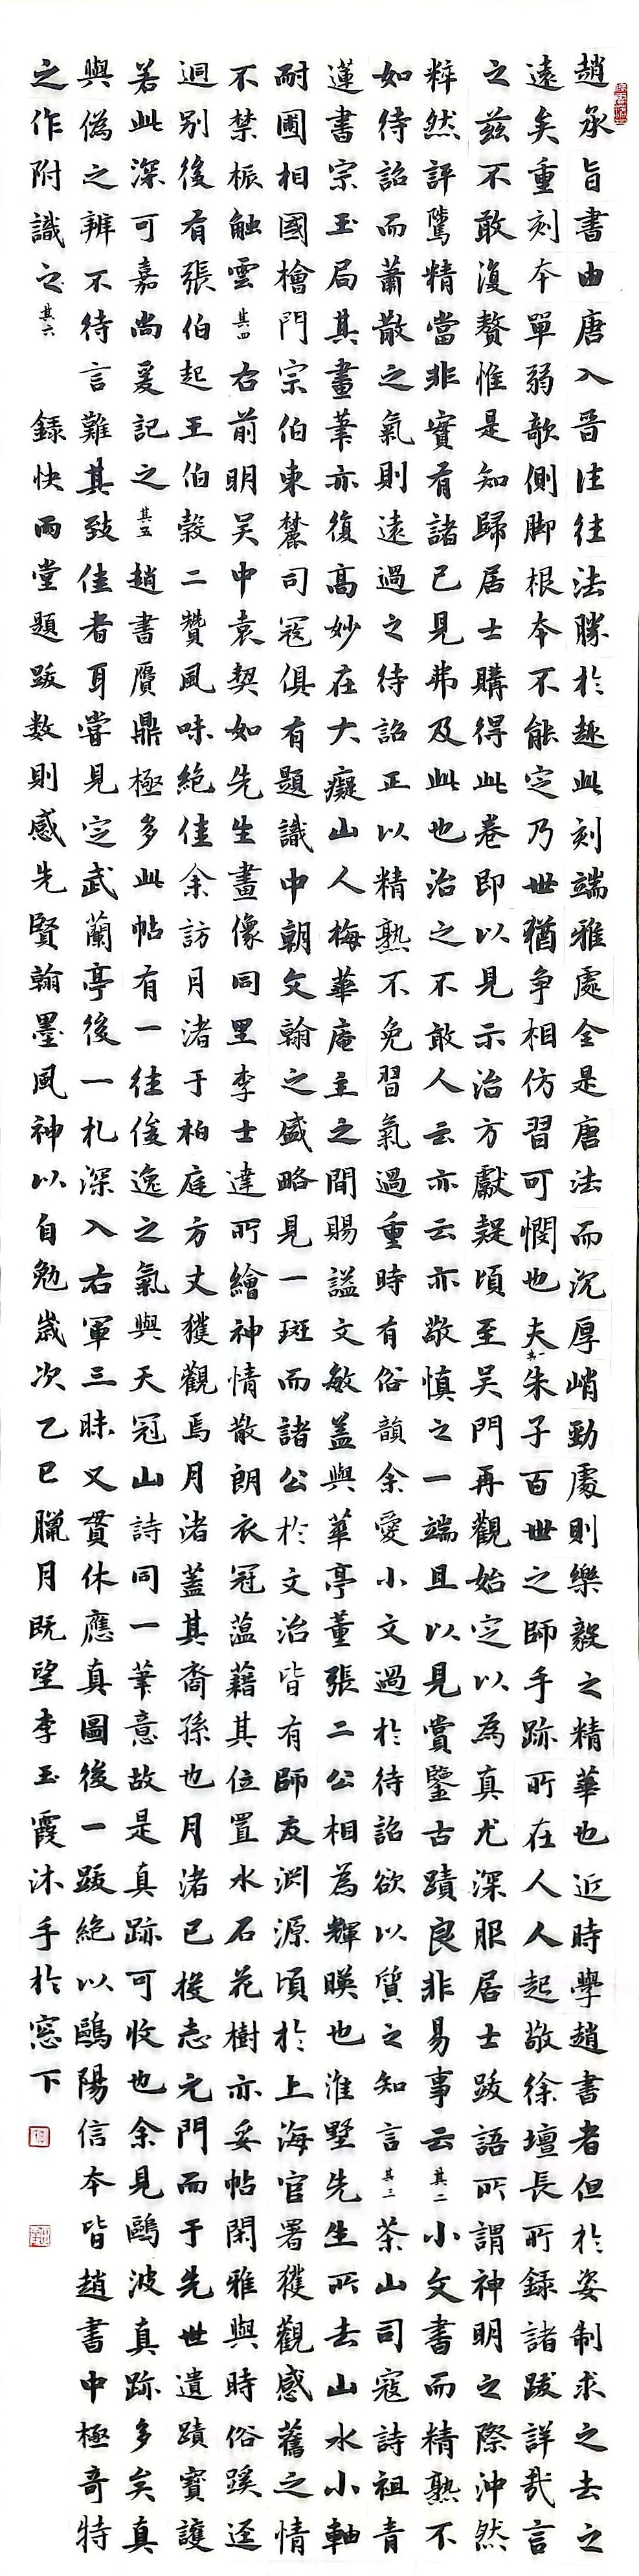 趙承旨書由唐入晉往往法勝於趣此刻端雅處全是唐法而沉厚峭勁處則樂毅之精華也近時學趙書者但於姿制求之去之
遠矣重刻本單弱欹側脚根本不能定乃世猶爭相仿習可憫也夫其一朱子百世之師手跡所在人人起敬徐壇長所録諸跋詳哉言
之茲不敢復贅惟是知歸居士購得此卷即以見示治方獻疑頃至吴門再觀始定以為真尤深服居士跋語所謂神明之際沖然
粹然評騭精當非實有諸己見弗及此也治之不敢人云亦云亦敬慎之一端且以見賞鑒古蹟良非易事云其二小文書而精熟不
如待詔而蕭散之氣則遠過之待詔正以精熟不免習氣過重時有俗韻余愛小文過於待詔欲以質之知言其三茶山司寇詩祖青
蓮書宗玉局其畫筆亦復高妙在大癡山人梅華庵主之間賜謚文敏蓋與華亭董張二公相為輝暎也淮墅先生所去山水小軸
耐圃相國檜門宗伯東麓司寇俱有題識中朝文翰之盛略見一斑而諸公於文治皆有師友渊源頃於上海官署獲觀感舊之情
不禁棖觸云其四右前明吴中袁契如先生畫像同里李士達所繪神情散朗衣冠蕴藉其位置水石花樹亦妥帖閑雅與時俗蹊逕
迥别後有張伯起王伯榖二贊風味絶佳余訪月渚于柏庭方丈獲觀焉月渚蓋其裔孫也月渚已棲志元門而于先世遺蹟寳護
若此深可嘉尚爰記之其五趙書贋鼎極多此帖有一往俊逸之氣與天冠山詩同一筆意故是真跡可收也余見鷗波真跡多矣真
與偽之辨不待言難其致佳者耳嘗見定武蘭亭後一札深入右軍三昧又貫休應真圖後一跋絶以鷗陽信本皆趙書中極奇特
之作附識之其六　録快雨堂題跋数則感先賢翰墨風神以自勉歲次乙巳臘月既望李玉霞沐手於窓下